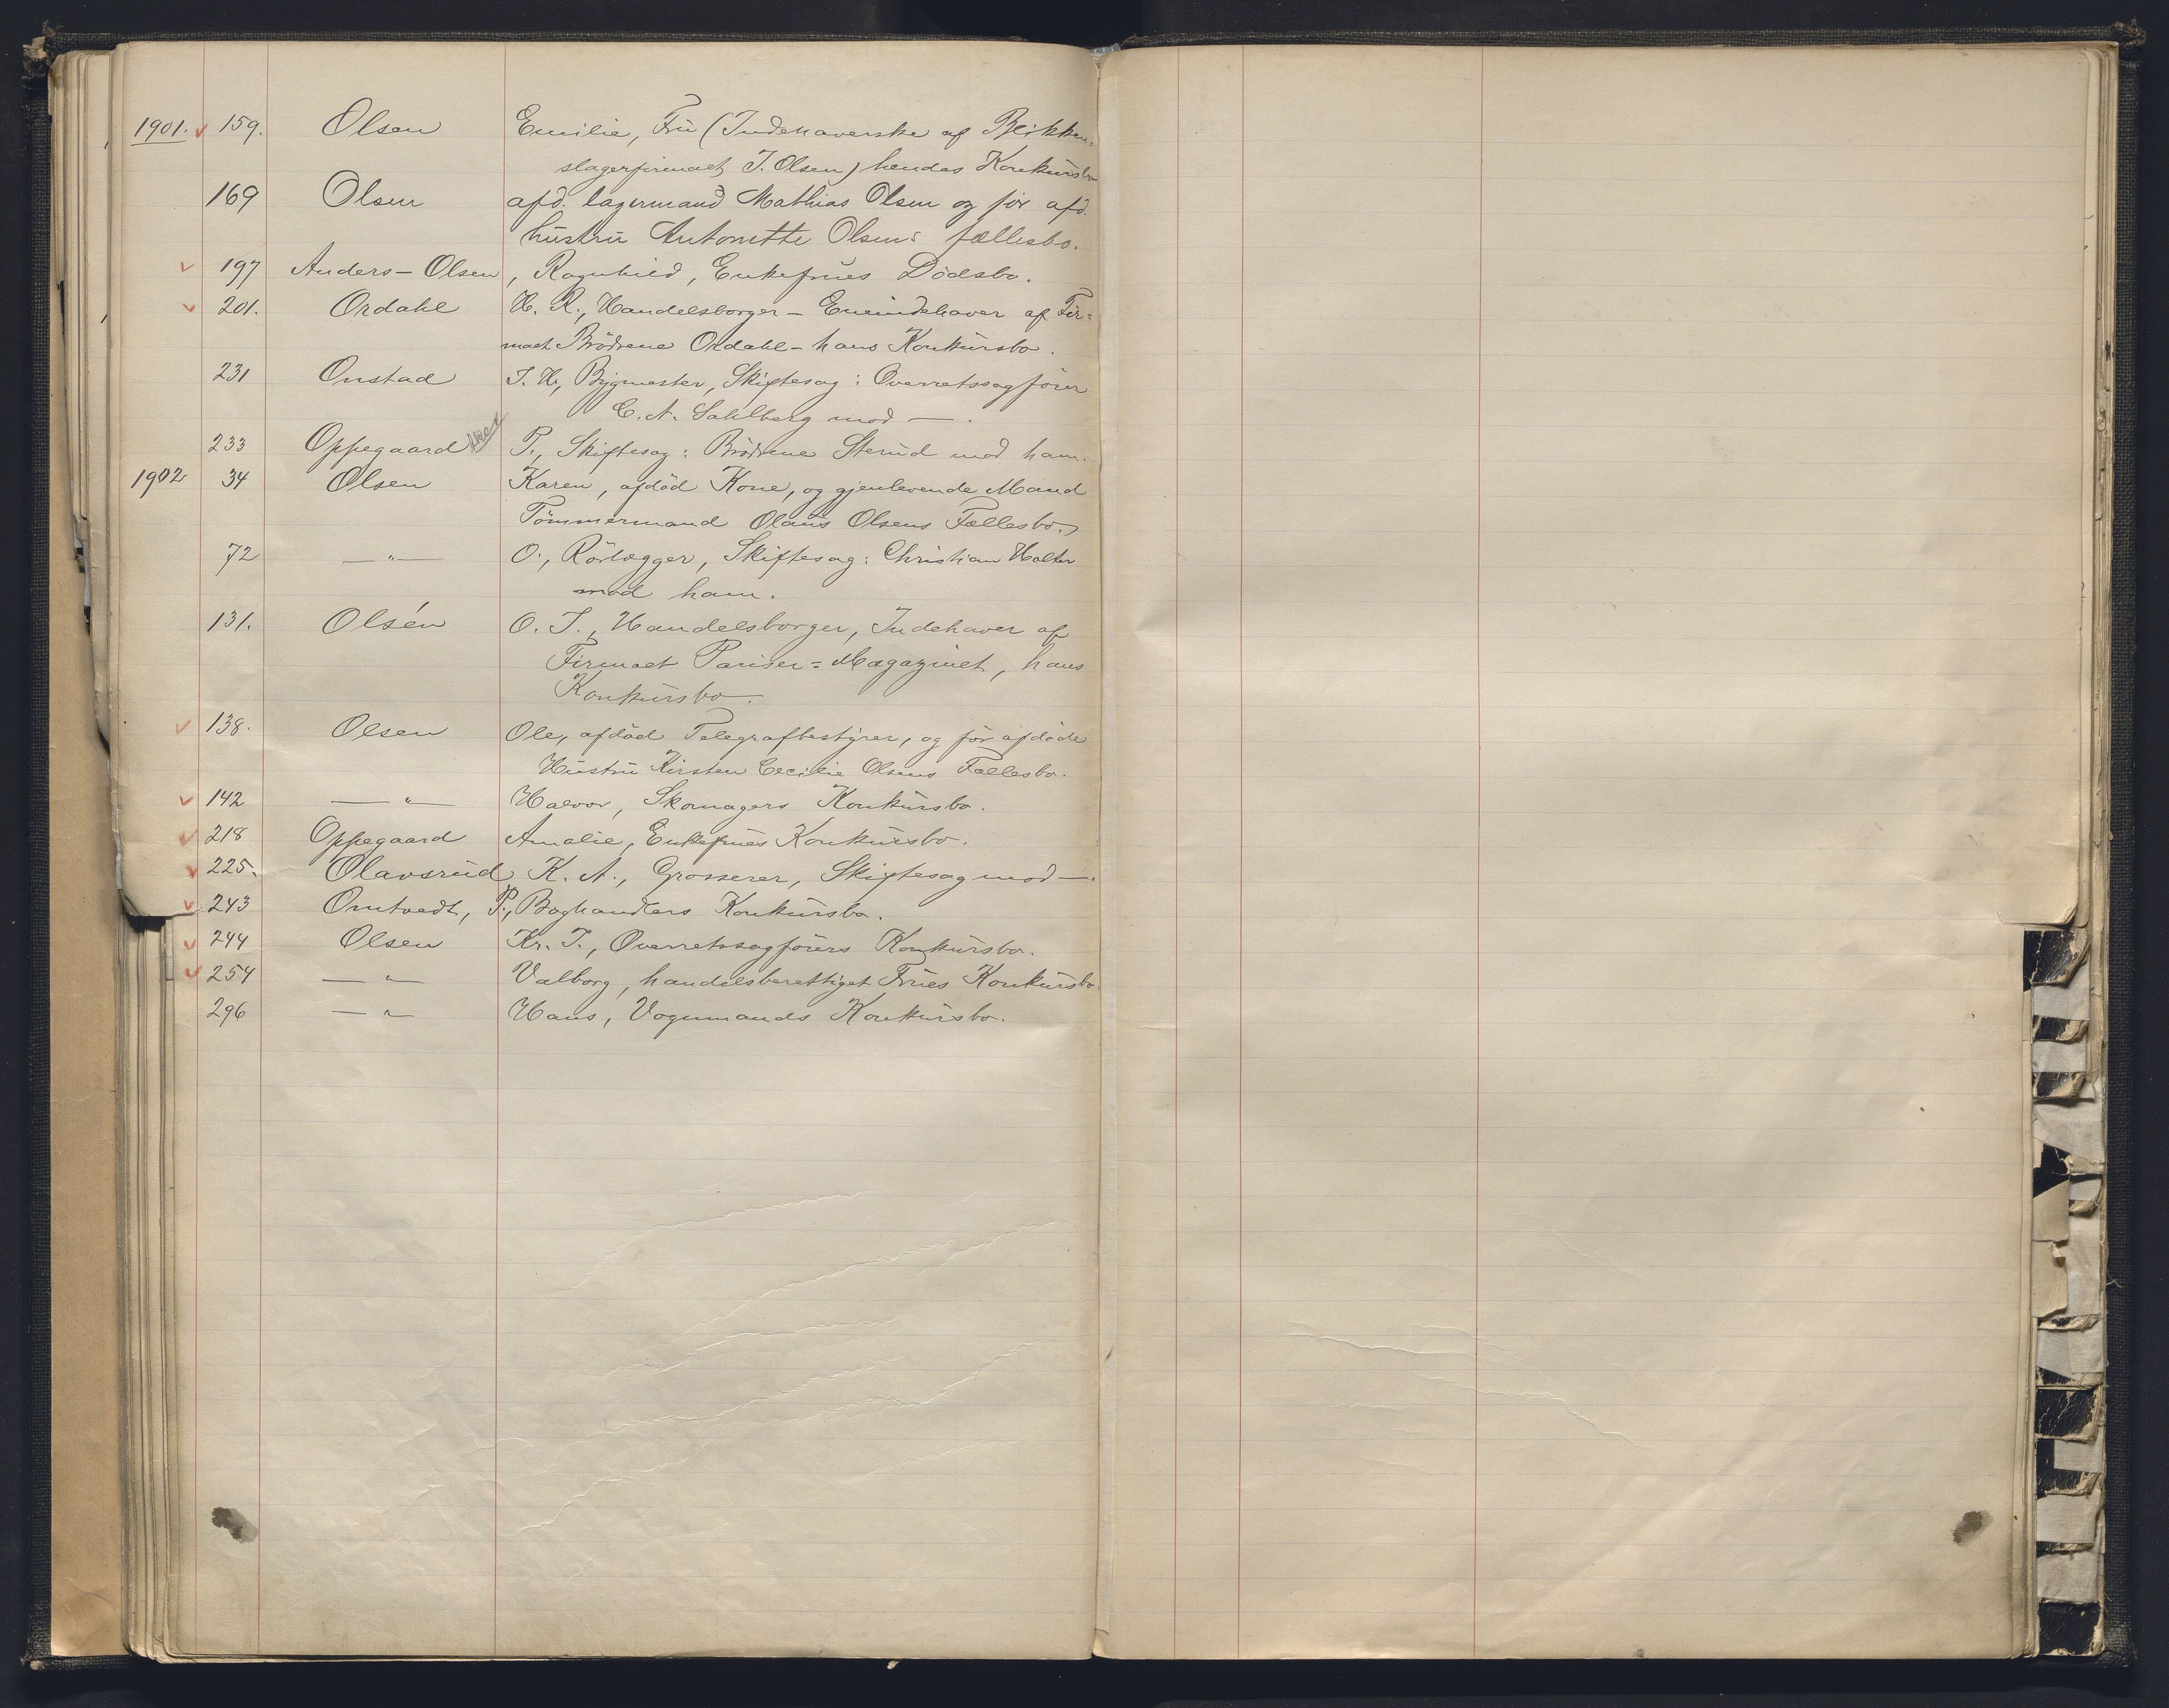 1901. v 159. Olsen Emilie, Fru (Indehaverske af Blikken=
slagerfirmaet J. Olsen) hendes Konkursbo
169 Olsen afd. lagermand Mathias Olsen og før afd.
hustru Antonette Olsens fællesbo.
v 197 Anders-Olsen, Ragnhild, Enkefrues Dödsbo.
v 201. Ordahl H. R., Handelsborger - Eneindehaver af Fir=
maet Brödrene Ordahl - hans Konkursbo.
231 Onstad J. H., Bygmester, Skiftesag: Overretssagförer
C. A. Sahlberg mod —.
233 Oppegaard P., Skiftesag: Brödrene Sterud mod ham.
1902 34 Olsen Karen, afdöd Kone, og gjenlevende Mand
Tömmermand Olaus Olsens Fællesbo.
72 —"— O., Rörlægger, Skiftesag: Christian Holter
mod ham.
131. Olsén O. J., Handelsborger, Indehaver af
Firmaet Pariser=Magazinet, hans
Konkursbo.
v 138. Olsen Ole, afdöd Telegrafbestyrer, og för afdöde
Hustru Kirsten Cecilie Olsens Fællesbo.
v 142 —"— Halvor, Skomagers Konkursbo.
v 218 Oppegaard Amalie, Enkefrues Konkursbo.
v 225. Olavsrud K. A., Grosserer, Skiftesag mod —.
v 243 Omtvedt, P., Boghandlers Konkursbo.
v 244 Olsen Kr. J., Overretssagförers Konkursbo.
v 254 —"— Valborg, handelsberettiget Frues Konkursbo
296 —"— Hans, Vognmands Konkursbo.